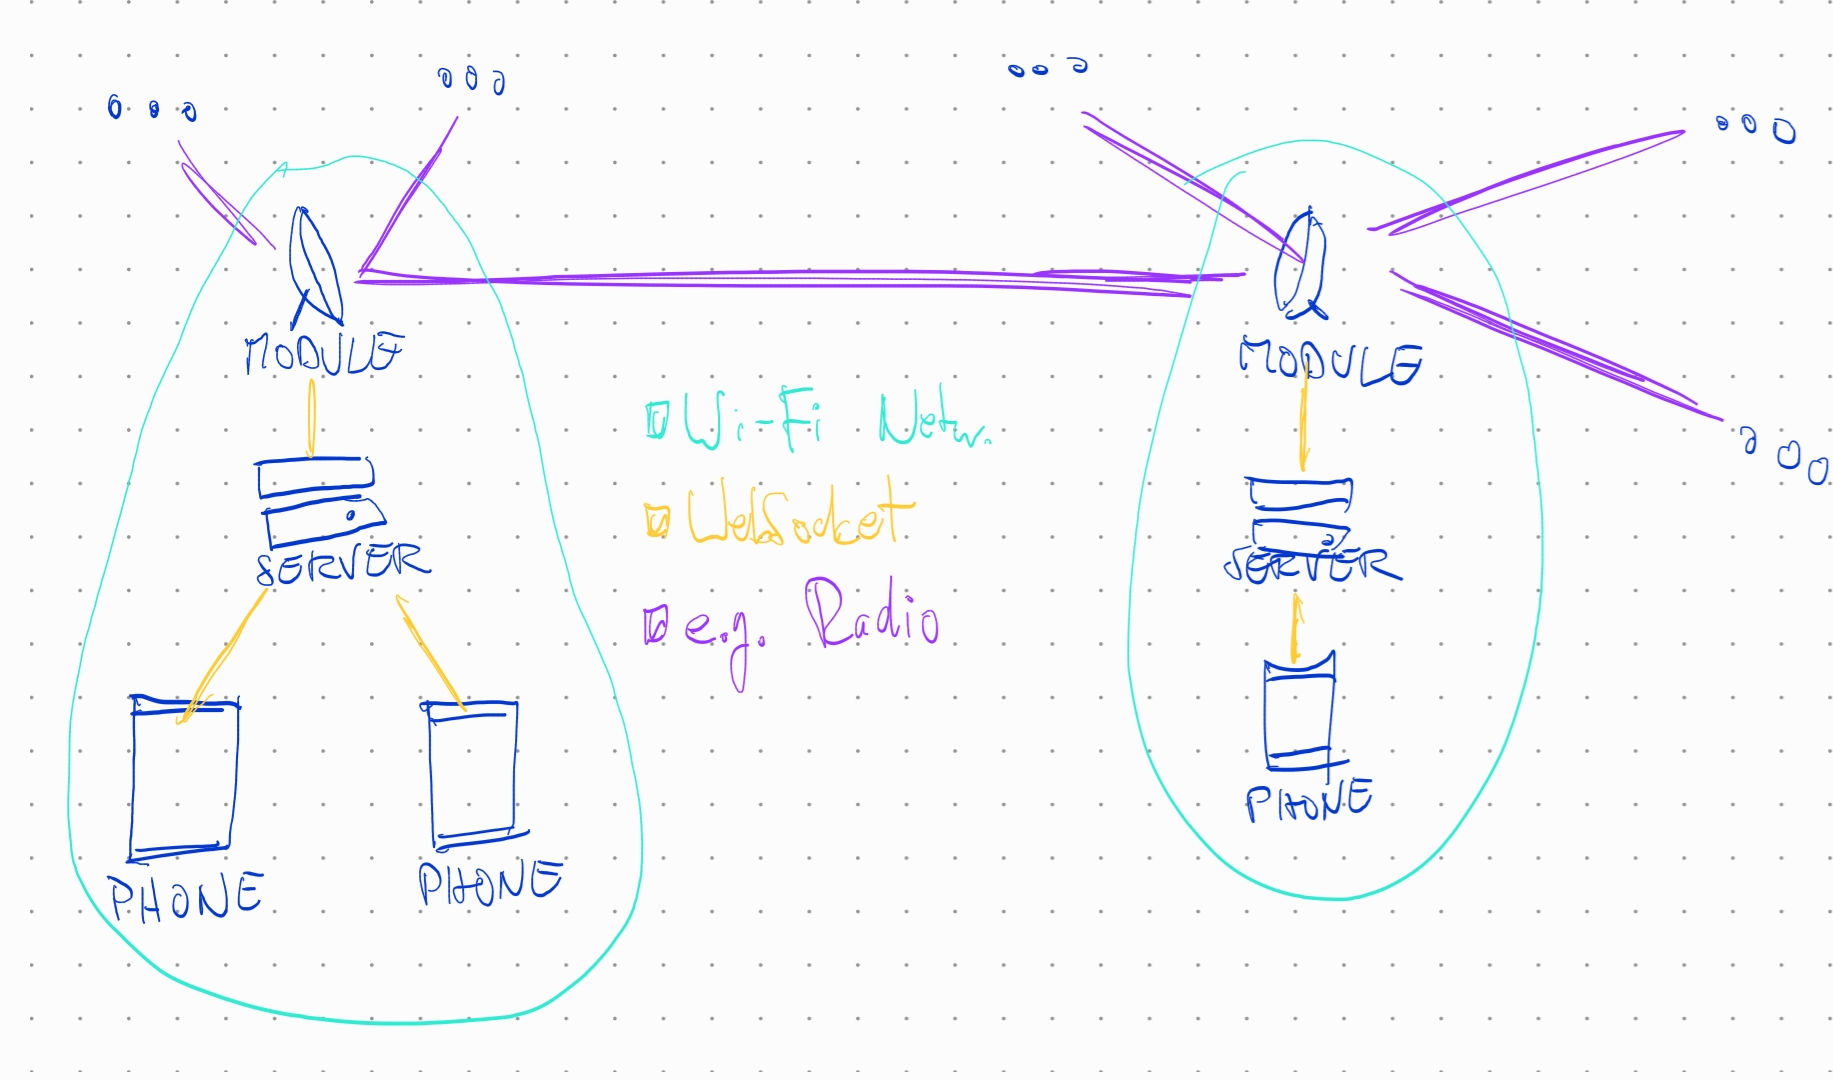 MODULE
SERVER
PHONE
PHONE
Wi-Fi Netw.
WebSocket
e.g. Radio
MODULE
SERVER
PHONE